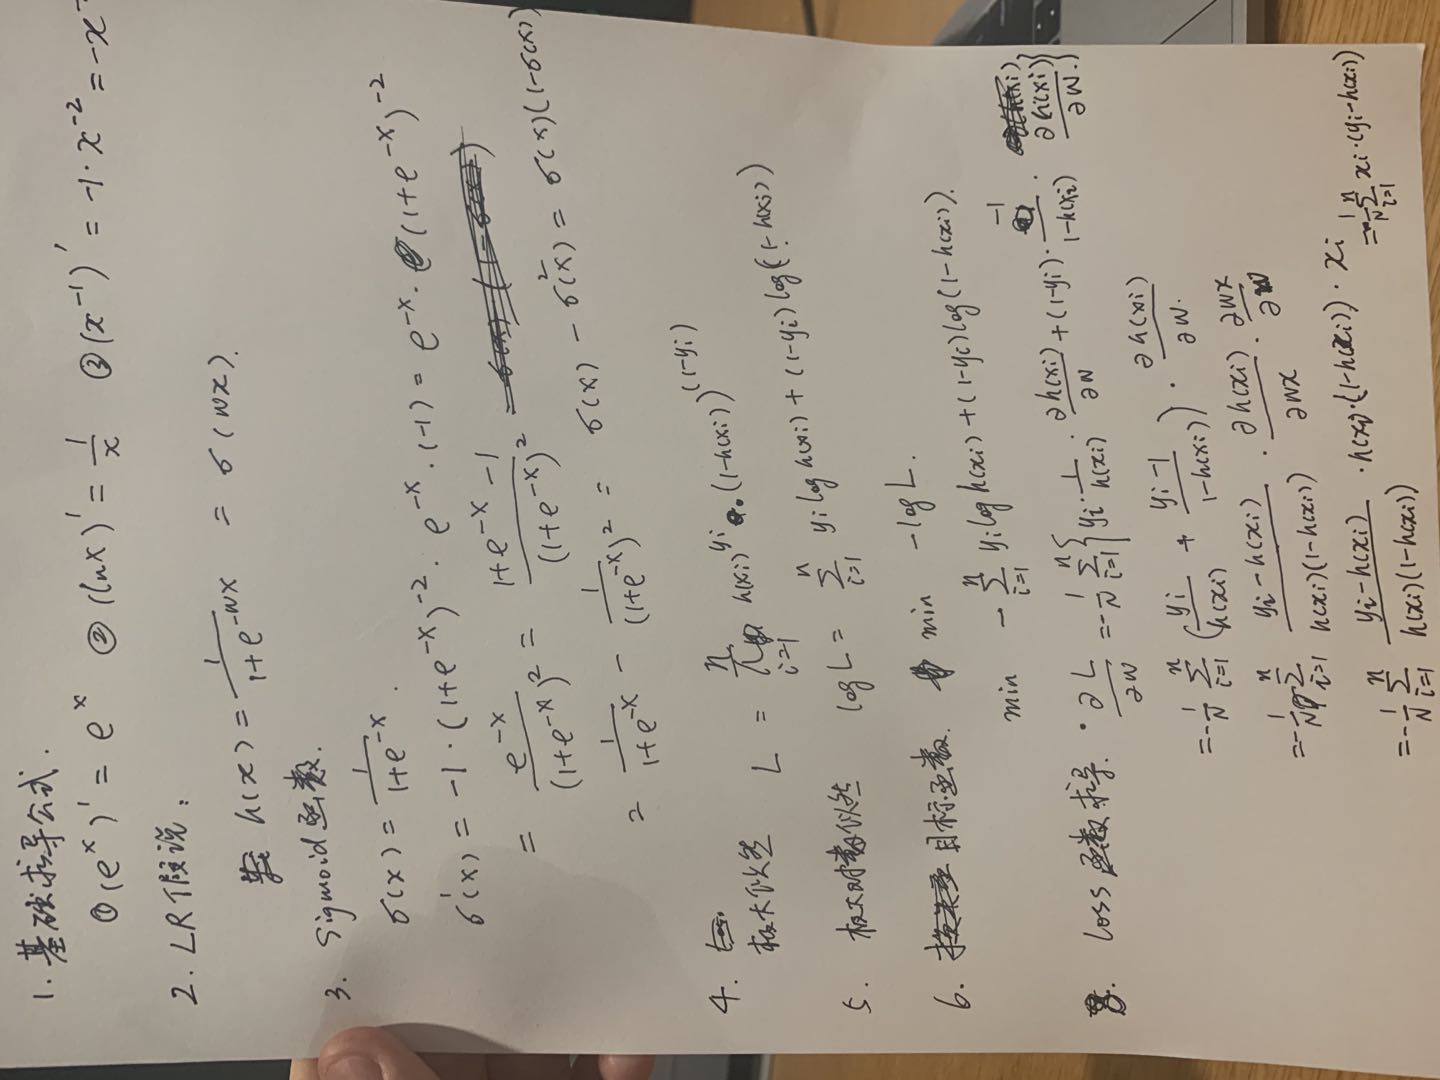 1. 基础求导公式.
①(e^x)' = e^x ②(lnx)' = 1/x ③(x^{-1})' = -1·x^{-2} = -x^-
2. LR假说:
h(x) = 1/(1+e^{-wx}) = σ(wx).
3. Sigmoid函数.
σ(x) = 1/(1+e^{-x}).
σ'(x) = -1·(1+e^{-x})^{-2}·e^{-x}·(-1) = e^{-x}·(1+e^{-x})^{-2}
= e^{-x}/(1+e^{-x})^2 = (1+e^{-x}-1)/(1+e^{-x})^2
= 1/(1+e^{-x}) - 1/(1+e^{-x})^2 = σ(x) - σ^2(x) = σ(x)(1-σ(x))
4. 极大似然 L = ∏_{i=1}^{n} h(xi)^{yi}·(1-h(xi))^{(1-yi)}
5. 极大对数似然 log L = Σ_{i=1}^{n} yi log h(xi) + (1-yi) log(1-h(xi))
6. 目标函数. min -log L.
min -Σ_{i=1}^{n} yi log h(xi) + (1-yi) log(1-h(xi)).
8. Loss 函数求导. ∂L/∂w = -1/N Σ_{i=1}^{n} {yi·1/h(xi)·∂h(xi)/∂w + (1-yi)·-1/(1-h(xi))·∂h(xi)/∂w.}
= -1/N Σ_{i=1}^{n} (yi/h(xi) + (yi-1)/(1-h(xi)))·∂h(xi)/∂w.
= -1/N Σ_{i=1}^{n} (yi-h(xi))/(h(xi)(1-h(xi)))·∂h(xi)/∂wx·∂wx/∂w
= -1/N Σ_{i=1}^{n} (yi-h(xi))/(h(xi)(1-h(xi)))·h(xi)·(1-h(xi))·xi = -1/N Σ_{i=1}^{n} xi·(yi-h(xi))